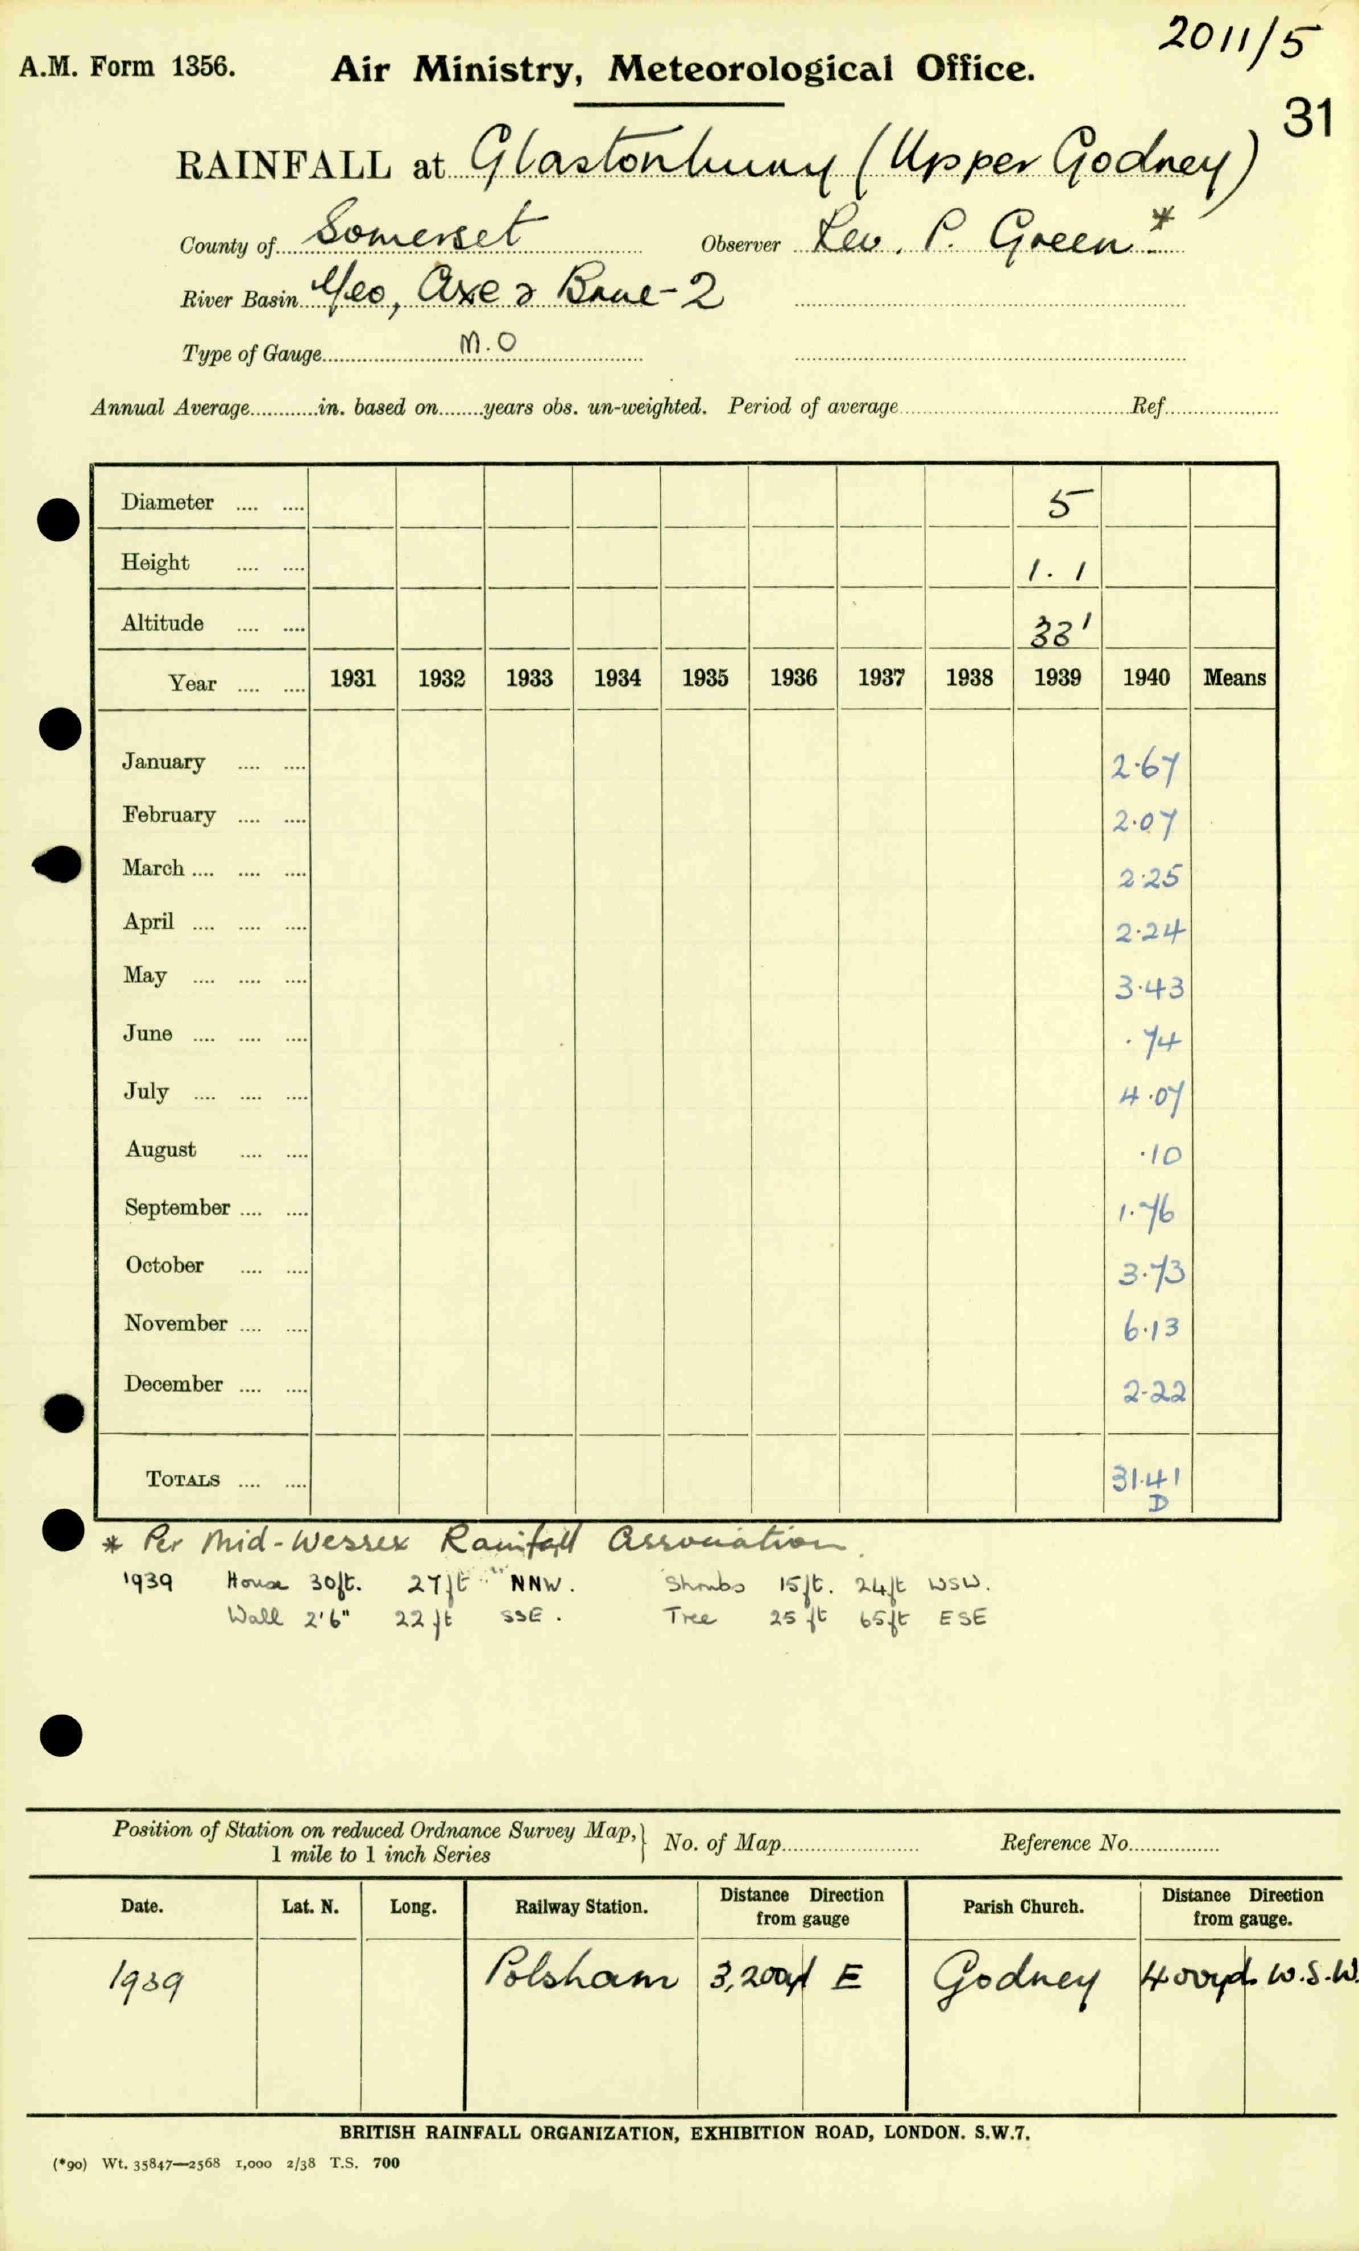 2011/5
A.M. Form 1356. Air Ministry, Meteorological Office.
31
RAINFALL at Glastonbury (Upper Godney)
County of Somerset Observer Rev. P. Green *
River Basin Yeo, Axe & Brue - 2
Type of Gauge M.O
Annual Average in. based on years obs. un-weighted. Period of average Ref.
Diameter .... .... 5
Height .... .... 1.1
Altitude .... .... 33'
Year .... .... 1931 1932 1933 1934 1935 1936 1937 1938 1939 1940 Means
January .... .... 2.67
February .... .... 2.07
March .... .... .... 2.25
April .... .... .... 2.24
May .... .... .... 3.43
June .... .... .... .74
July .... .... .... 4.07
August .... .... .10
September .... .... 1.76
October .... .... 3.73
November .... .... 6.13
December .... .... 2.22
TOTALS .... .... 31.41
D
* Per Mid-Wessex Rainfall Association.
1939 House 30ft. 27ft NNW. Shrubs 15ft. 24ft WSW.
Wall 2'6" 22ft SSE. Tree 25ft 65ft ESE
Position of Station on reduced Ordnance Survey Map, } No. of Map Reference No.
1 mile to 1 inch Series
Date. Lat. N. Long. Railway Station. Distance Direction from gauge Parish Church. Distance Direction from gauge.
1939 Polsham 3,200yd E Godney 400yd. W.S.W.
BRITISH RAINFALL ORGANIZATION, EXHIBITION ROAD, LONDON. S.W.7.
(*90) Wt. 35847—2568 1,000 2/38 T.S. 700